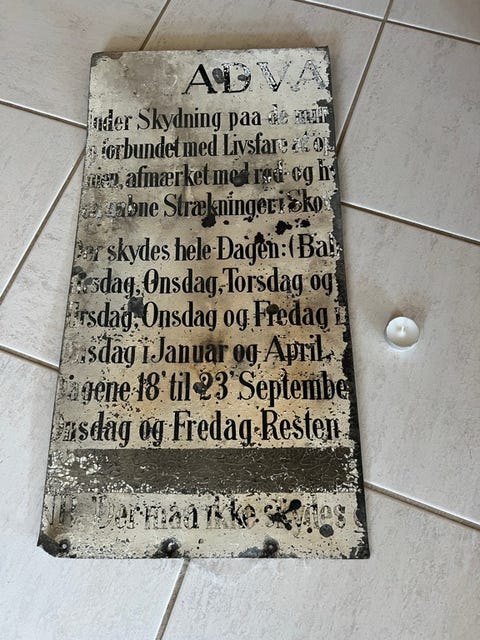 ADVA
nder Skydning paa de mil
forbundet med Livsfare at op
afmærket med rød og h
aabne Strækninger i Sko
Der skydes hele Dagen: (Bal
sdag, Onsdag, Torsdag og
rsdag, Onsdag og Fredag i
sdag i Januar og April.
agene 18' til 23' Septembe
nsdag og Fredag Resten
Der maa ikke skydes